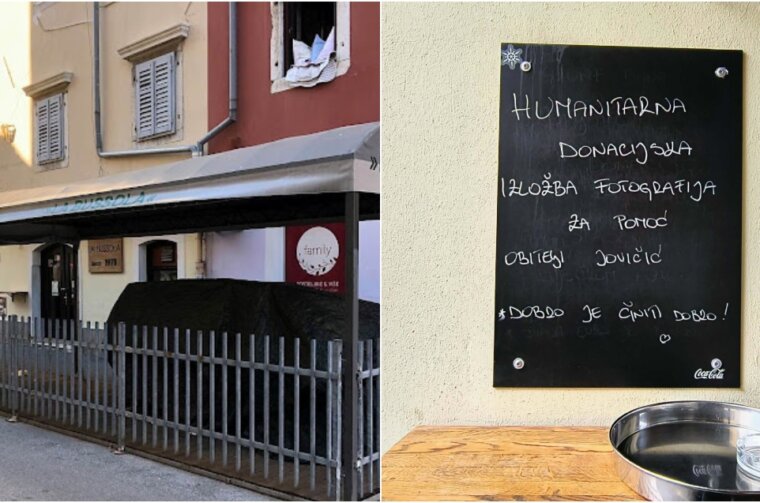 LA BUSSOLA
LA BUSSOLA
1978
family
HUMANITARNA
DONACIJSKA
IZLOŽBA FOTOGRAFIJA
ZA POMOĆ
OBITELJI JOVIČIĆ
*DOBRO JE ČINITI DOBRO!
Coca-Cola
Coca-Cola